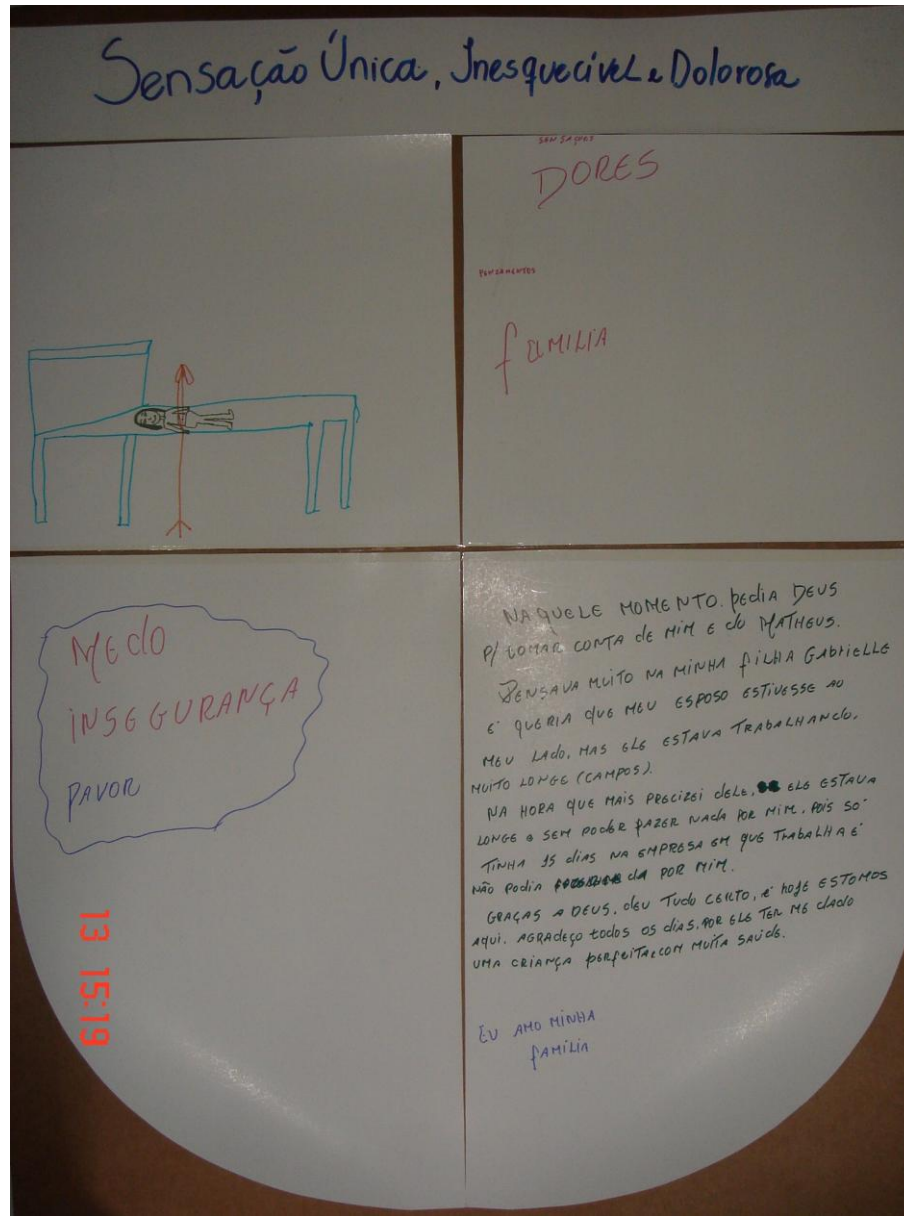 Sensação Única, Inesquecível e Dolorosa
SENSAÇÕES
DORES
PENSAMENTOS
família
Medo
INSEGURANÇA
PAVOR
NAQUELE MOMENTO. pedia DEUS
P/ TOMAR CONTA de MIM E do MATHEUS.
PENSAVA MUITO NA MINHA filha Gabrielle
E QUERIA QUE MEU ESPOSO ESTIVESSE AO
MEU LADO, MAS ELE ESTAVA TRABALHANDO,
MUITO LONGE (CAMPOS).
NA HORA QUE MAIS PRECIZEI DELE, ELE ESTAVA
LONGE E SEM PODER FAZER NADA POR MIM. POIS SÓ
TINHA 15 dias NA EMPRESA EM QUE TRABALHA E
NÃO Podia POR MIM.
GRAÇAS A DEUS, deu Tudo CERTO, E hoje ESTOMOS
AQUI. AGRADEÇO todos os dias, POR ELE TER ME dado
UMA CRIANÇA PERFEITA E COM MUITA SAÚDE.
EU AMO MINHA
FAMÍLIA
13 15:19